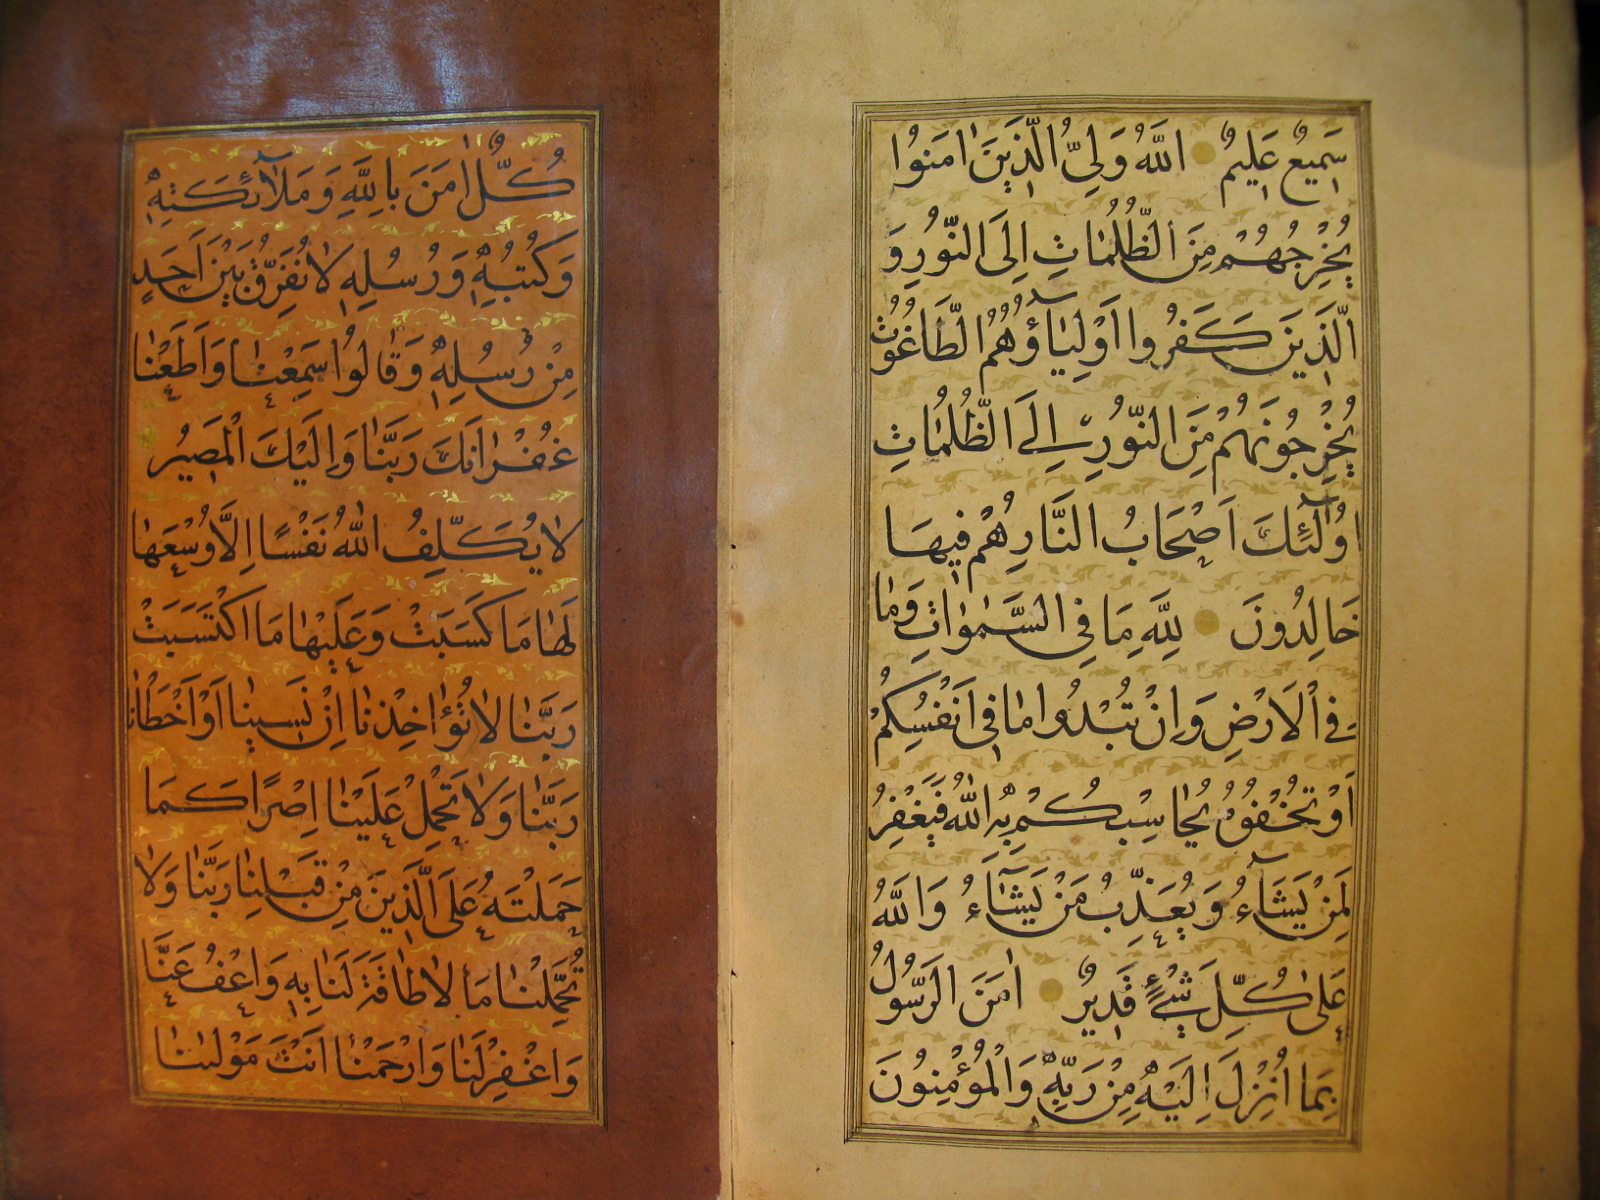 سَمِيعٌ عَلِيمٌ اَللَّهُ وَلِيُّ الَّذِينَ اٰمَنُوا
يُخْرِجُهُمْ مِنَ الظُّلُمَاتِ اِلَى النُّورِ وَ
الَّذِينَ كَفَرُوا اَوْلِيَاؤُهُمُ الطَّاغُوتُ
يُخْرِجُونَهُمْ مِنَ النُّورِ اِلَى الظُّلُمَاتِ
اُولٰٓئِكَ اَصْحَابُ النَّارِ هُمْ فِيهَا
خَالِدُونَ لِلَّهِ مَا فِي السَّمٰوَاتِ وَمَا
فِي الْاَرْضِ وَاِنْ تُبْدُوا مَا فِي اَنْفُسِكُمْ
اَوْ تُخْفُوهُ يُحَاسِبْكُمْ بِهِ اللَّهُ فَيَغْفِرُ
لِمَنْ يَشَآءُ وَيُعَذِّبُ مَنْ يَشَآءُ وَاللَّهُ
عَلٰى كُلِّ شَيْءٍ قَدِيرٌ اٰمَنَ الرَّسُولُ
بِمَا اُنْزِلَ اِلَيْهِ مِنْ رَبِّهِ وَالْمُؤْمِنُونَ
كُلٌّ اٰمَنَ بِاللَّهِ وَمَلَآئِكَتِهِ
وَكُتُبِهِ وَرُسُلِهِ لَا نُفَرِّقُ بَيْنَ اَحَدٍ
مِنْ رُسُلِهِ وَقَالُوا سَمِعْنَا وَاَطَعْنَا
غُفْرَانَكَ رَبَّنَا وَاِلَيْكَ الْمَصِيرُ
لَا يُكَلِّفُ اللَّهُ نَفْسًا اِلَّا وُسْعَهَا
لَهَا مَا كَسَبَتْ وَعَلَيْهَا مَا اكْتَسَبَتْ
رَبَّنَا لَا تُؤَاخِذْنَا اِنْ نَسِينَا اَوْ اَخْطَاْنَا
رَبَّنَا وَلَا تَحْمِلْ عَلَيْنَا اِصْرًا كَمَا
حَمَلْتَهُ عَلَى الَّذِينَ مِنْ قَبْلِنَا رَبَّنَا وَلَا
تُحَمِّلْنَا مَا لَا طَاقَةَ لَنَا بِهِ وَاعْفُ عَنَّا
وَاغْفِرْ لَنَا وَارْحَمْنَا اَنْتَ مَوْلٰىنَا